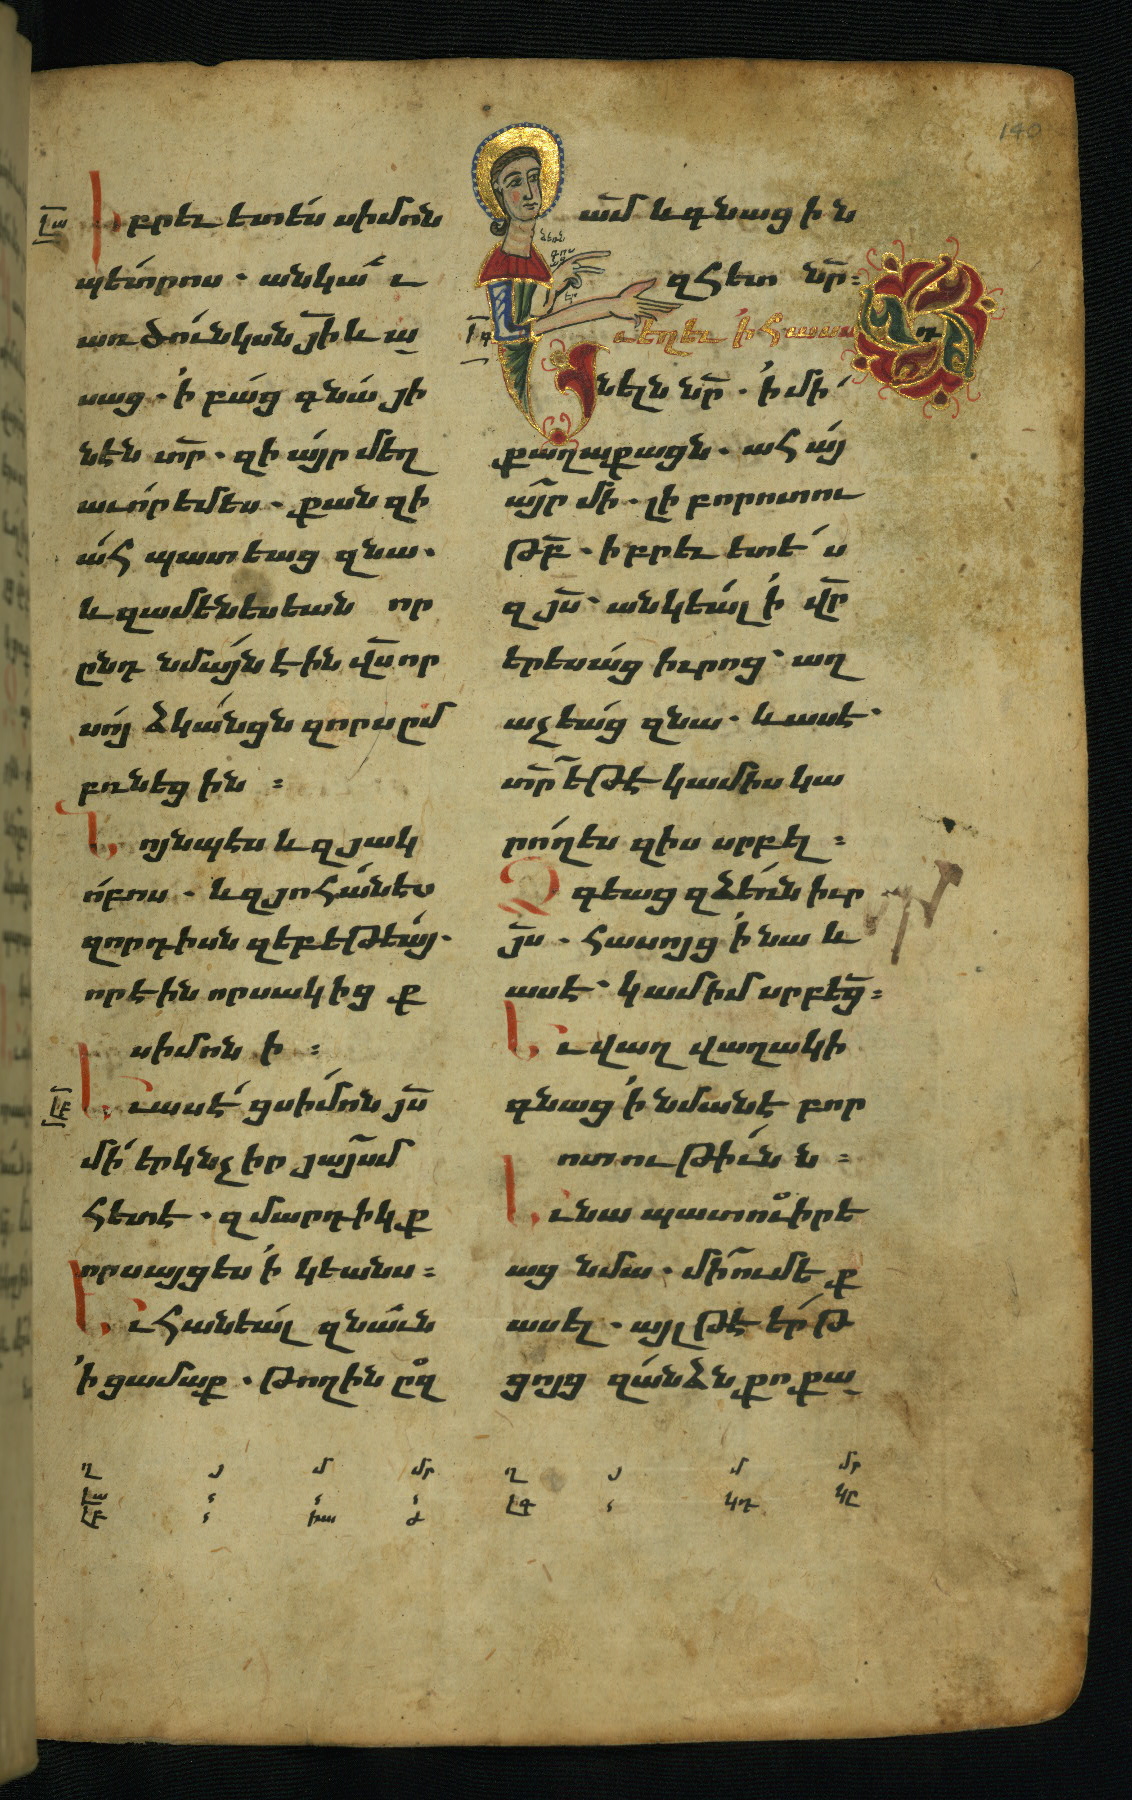 140
լա
Իբրեւ ետես սիմոն
պետրոս · անկաւ
առ ծունկսն յի և ա
սաց · ի բաց գնա յի
նէն տր · զի այր մեղ
աւոր եմ ես · քանզի
ահ պատեաց զնա ·
և զամենեսեան որ
ընդ նմայն էին վս որ
սոյ ձկանցն զոր ըմ
բռնեցին :
Նոյնպես և զյակ
ոբոս · և զյոհաննես
զորդիսն զեբեթեայ ·
որ էին որսակիցք
սիմոնի :
լբ
Եւ ասէ ցսիմոն յս
մի երկնչիր յայսմ
հետէ · զմարդիկ ք
որսայցես ի կեանս :
Եւ հանեալ զնաւն
ի ցամաք · թողին ըզ
ամ և գնացին
զհետ նր :
լգ
Եւ եղեւ ի հասա
նելն նր · ի մի
քաղաքացն · ահայ
այր մի · լի բորոտու
թբ · իբրեւ ետես
զյս · անկեալ ի վր
երեսաց իւրոց · աղ
աչեաց զնա · և ասէ ·
տր եթէ կամիս կա
րող ես զիս սրբել :
Ձգեաց զձեռն իւր
յս · հասոյց ի նա և
ասէ · կամիմ սրբեց :
Եւ վաղվաղակի
գնաց ի նմանէ բոր
ոտութիւնն :
Եւ նա պատուիրե
աց նմա · մի ումեք
ասել · այլ թէ երթ
ցոյց զանձն քո քա
ղ յ մ մր
լա
լբ խա
ղ յ մ մր
լգ կդ կը